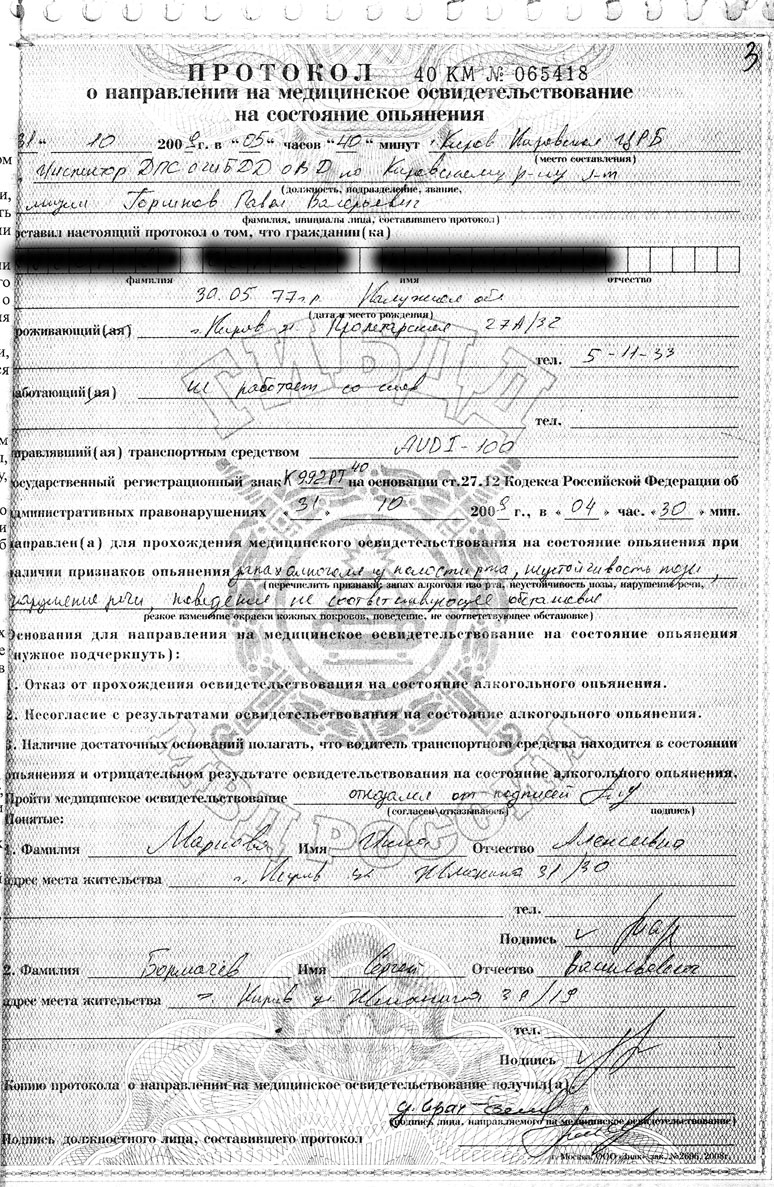 3
ПРОТОКОЛ 40 КМ № 065418
о направлении на медицинское освидетельствование
на состояние опьянения
31 " 10 2009 г. в "05" часов "40" минут г. Киров Кировская ЦРБ
(место составления)
Инспектор ДПС ОГИБДД ОВД по Кировскому р-ну л-т
(должность, подразделение, звание,
милиции Павел Валерьевич
фамилия, инициалы лица, составившего протокол)
составил настоящий протокол о том, что гражданин(ка)
фамилия имя отчество
30.05.77 г.р. Калужская обл
(дата и место рождения)
проживающий(ая) г. Киров ул. Пролетарская 27А/32
тел. 5-11-33
работающий(ая) не работает со слов
тел.
управлявший(ая) транспортным средством AUDI-100
государственный регистрационный знак К992РТ40 на основании ст.27.12 Кодекса Российской Федерации об
административных правонарушениях «31» 10 2009 г., в «04» час. «30» мин.
направлен(а) для прохождения медицинского освидетельствования на состояние опьянения при
наличии признаков опьянения запах алкоголя из полости рта, неустойчивость позы,
(перечислить признаки: запах алкоголя изо рта, неустойчивость позы, нарушение речи,
нарушение речи, поведение не соответствующее обстановке
резкое изменение окраски кожных покровов, поведение, не соответствующее обстановке)
Основания для направления на медицинское освидетельствование на состояние опьянения
(нужное подчеркнуть):
1. Отказ от прохождения освидетельствования на состояние алкогольного опьянения.
2. Несогласие с результатами освидетельствования на состояние алкогольного опьянения.
3. Наличие достаточных оснований полагать, что водитель транспортного средства находится в состоянии
опьянения и отрицательном результате освидетельствования на состояние алкогольного опьянения.
Пройти медицинское освидетельствование отказался от подписей
(согласен\отказываюсь) подпись)
Понятые:
1. Фамилия Маркова Имя Отчество Алексеевна
адрес места жительства г. Киров ул 31/30
тел.
Подпись
2. Фамилия Бормачёв Имя Сергей Отчество Васильевич
адрес места жительства г. Киров ул. 31/19
тел.
Подпись
Копию протокола о направлении на медицинское освидетельствование получил(а)
(подпись лица, направляемого на медицинское освидетельствование)
Подпись должностного лица, составившего протокол
г. Москва, ООО «Знак» зак. №2606, 2008г.
ГИБДД
МВД РОССИИ